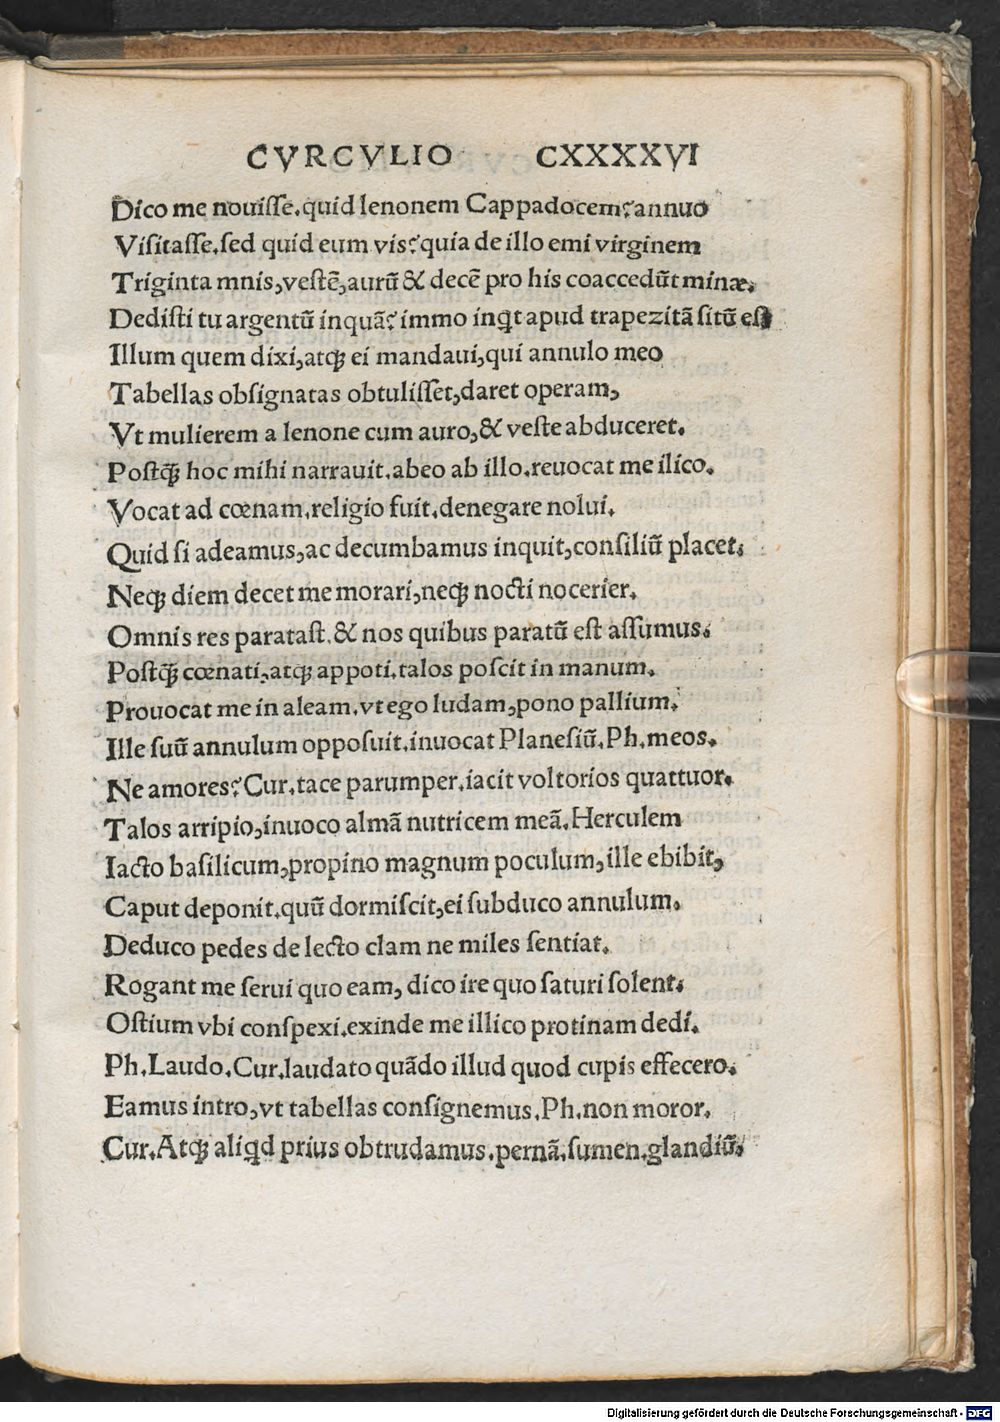 CVRCVLIO CXXXXVI
Dico me nouiſſe.quid lenonem Cappadocem?annuo
Viſitaſſe.ſed quid eum vis?quia de illo emi virginem
Triginta mnis,veſtē,aurū & decē pro his coaccedūt minæ.
Dediſti tu argentū inquā? immo inqͥt apud trapezitā ſitū eſt
Illum quem dixi,atqꝫ ei mandaui,qui annulo meo
Tabellas obſignatas obtuliſſet,daret operam,
Vt mulierem a lenone cum auro,& veſte abduceret.
Poſtqꝫ hoc mihi narrauit.abeo ab illo.reuocat me ilico.
Vocat ad cœnam.religio fuit.denegare nolui.
Quid ſi adeamus,ac decumbamus inquit,conſiliū placet.
Neqꝫ diem decet me morari,neqꝫ nocti nocerier.
Omnis res parataſt.& nos quibus paratū eſt aſſumus.
Poſtqꝫ cœnati,atqꝫ appoti.talos poſcit in manum.
Prouocat me in aleam.vt ego ludam,pono pallium.
Ille ſuū annulum oppoſuit.inuocat Planeſiū.Ph.meos.
Ne amores?Cur.tace parumper.iacit voltorios quattuor.
Talos arripio,inuoco almā nutricem meā.Herculem
Iacto baſilicum,propino magnum poculum,ille ebibit,
Caput deponit.quū dormiſcit,ei ſubduco annulum.
Deduco pedes de lecto clam ne miles ſentiat.
Rogant me ſerui quo eam, dico ire quo ſaturi ſolent.
Oſtium vbi conſpexi.exinde me illico protinam dedi.
Ph.Laudo.Cur.laudato quādo illud quod cupis effecero.
Eamus intro,vt tabellas conſignemus.Ph.non moror.
Cur.Atqꝫ aliqͥd prius obtrudamus.pernā.ſumen.glandiū.
Digitalisierung gefördert durch die Deutsche Forschungsgemeinschaft - DFG